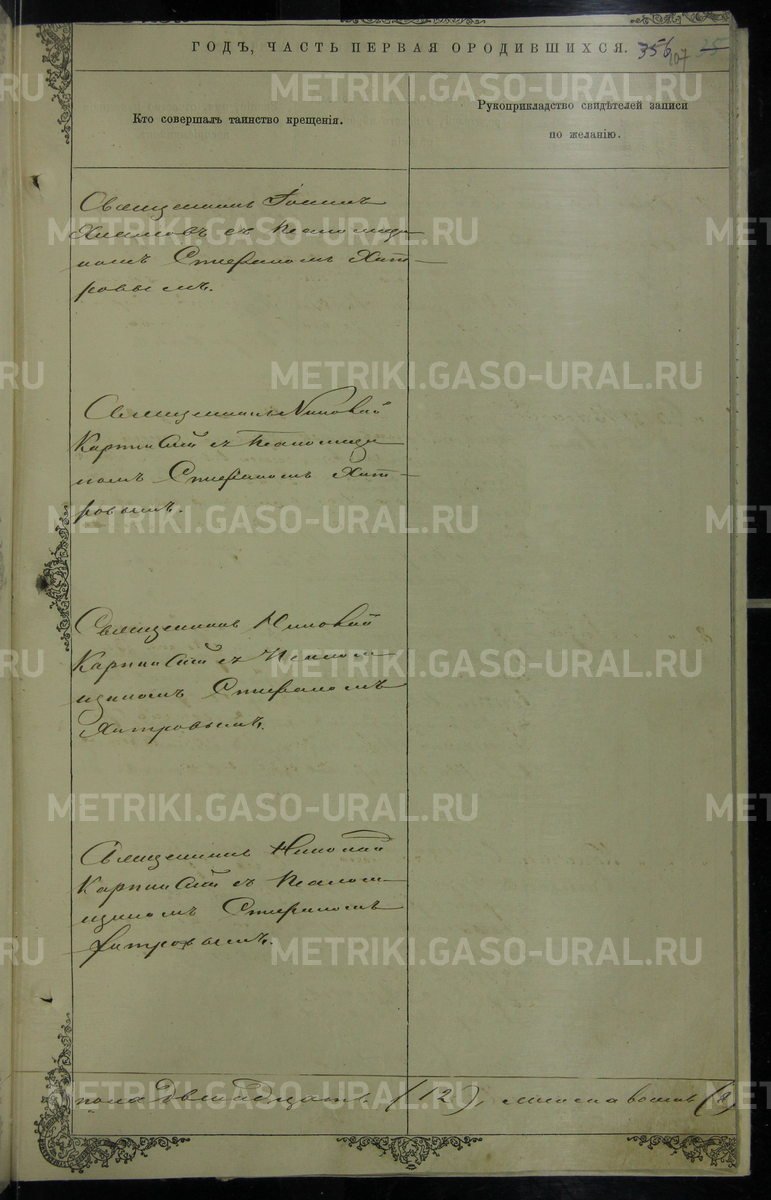 ГОДЪ, ЧАСТЬ ПЕРВАЯ О РОДИВШИХСЯ. 356 107
Кто совершалъ таинство крещенія.
Рукоприкладство свидѣтелей записи
по желанію.
Священникъ Іоаннъ
съ Псаломщи-
комъ Стефаномъ Хит-
ровымъ.
Священникъ Николай
Карпинскій съ Псаломщи-
комъ Стефаномъ Хит-
ровымъ.
Священникъ Николай
Карпинскій съ Псалом-
щикомъ Стефаномъ
Хитровымъ.
Священникъ Николай
Карпинскій съ Псалом-
щикомъ Стефаномъ
Хитровымъ.
пола двенадцать (12),
METRIKI.GASO-URAL.RU